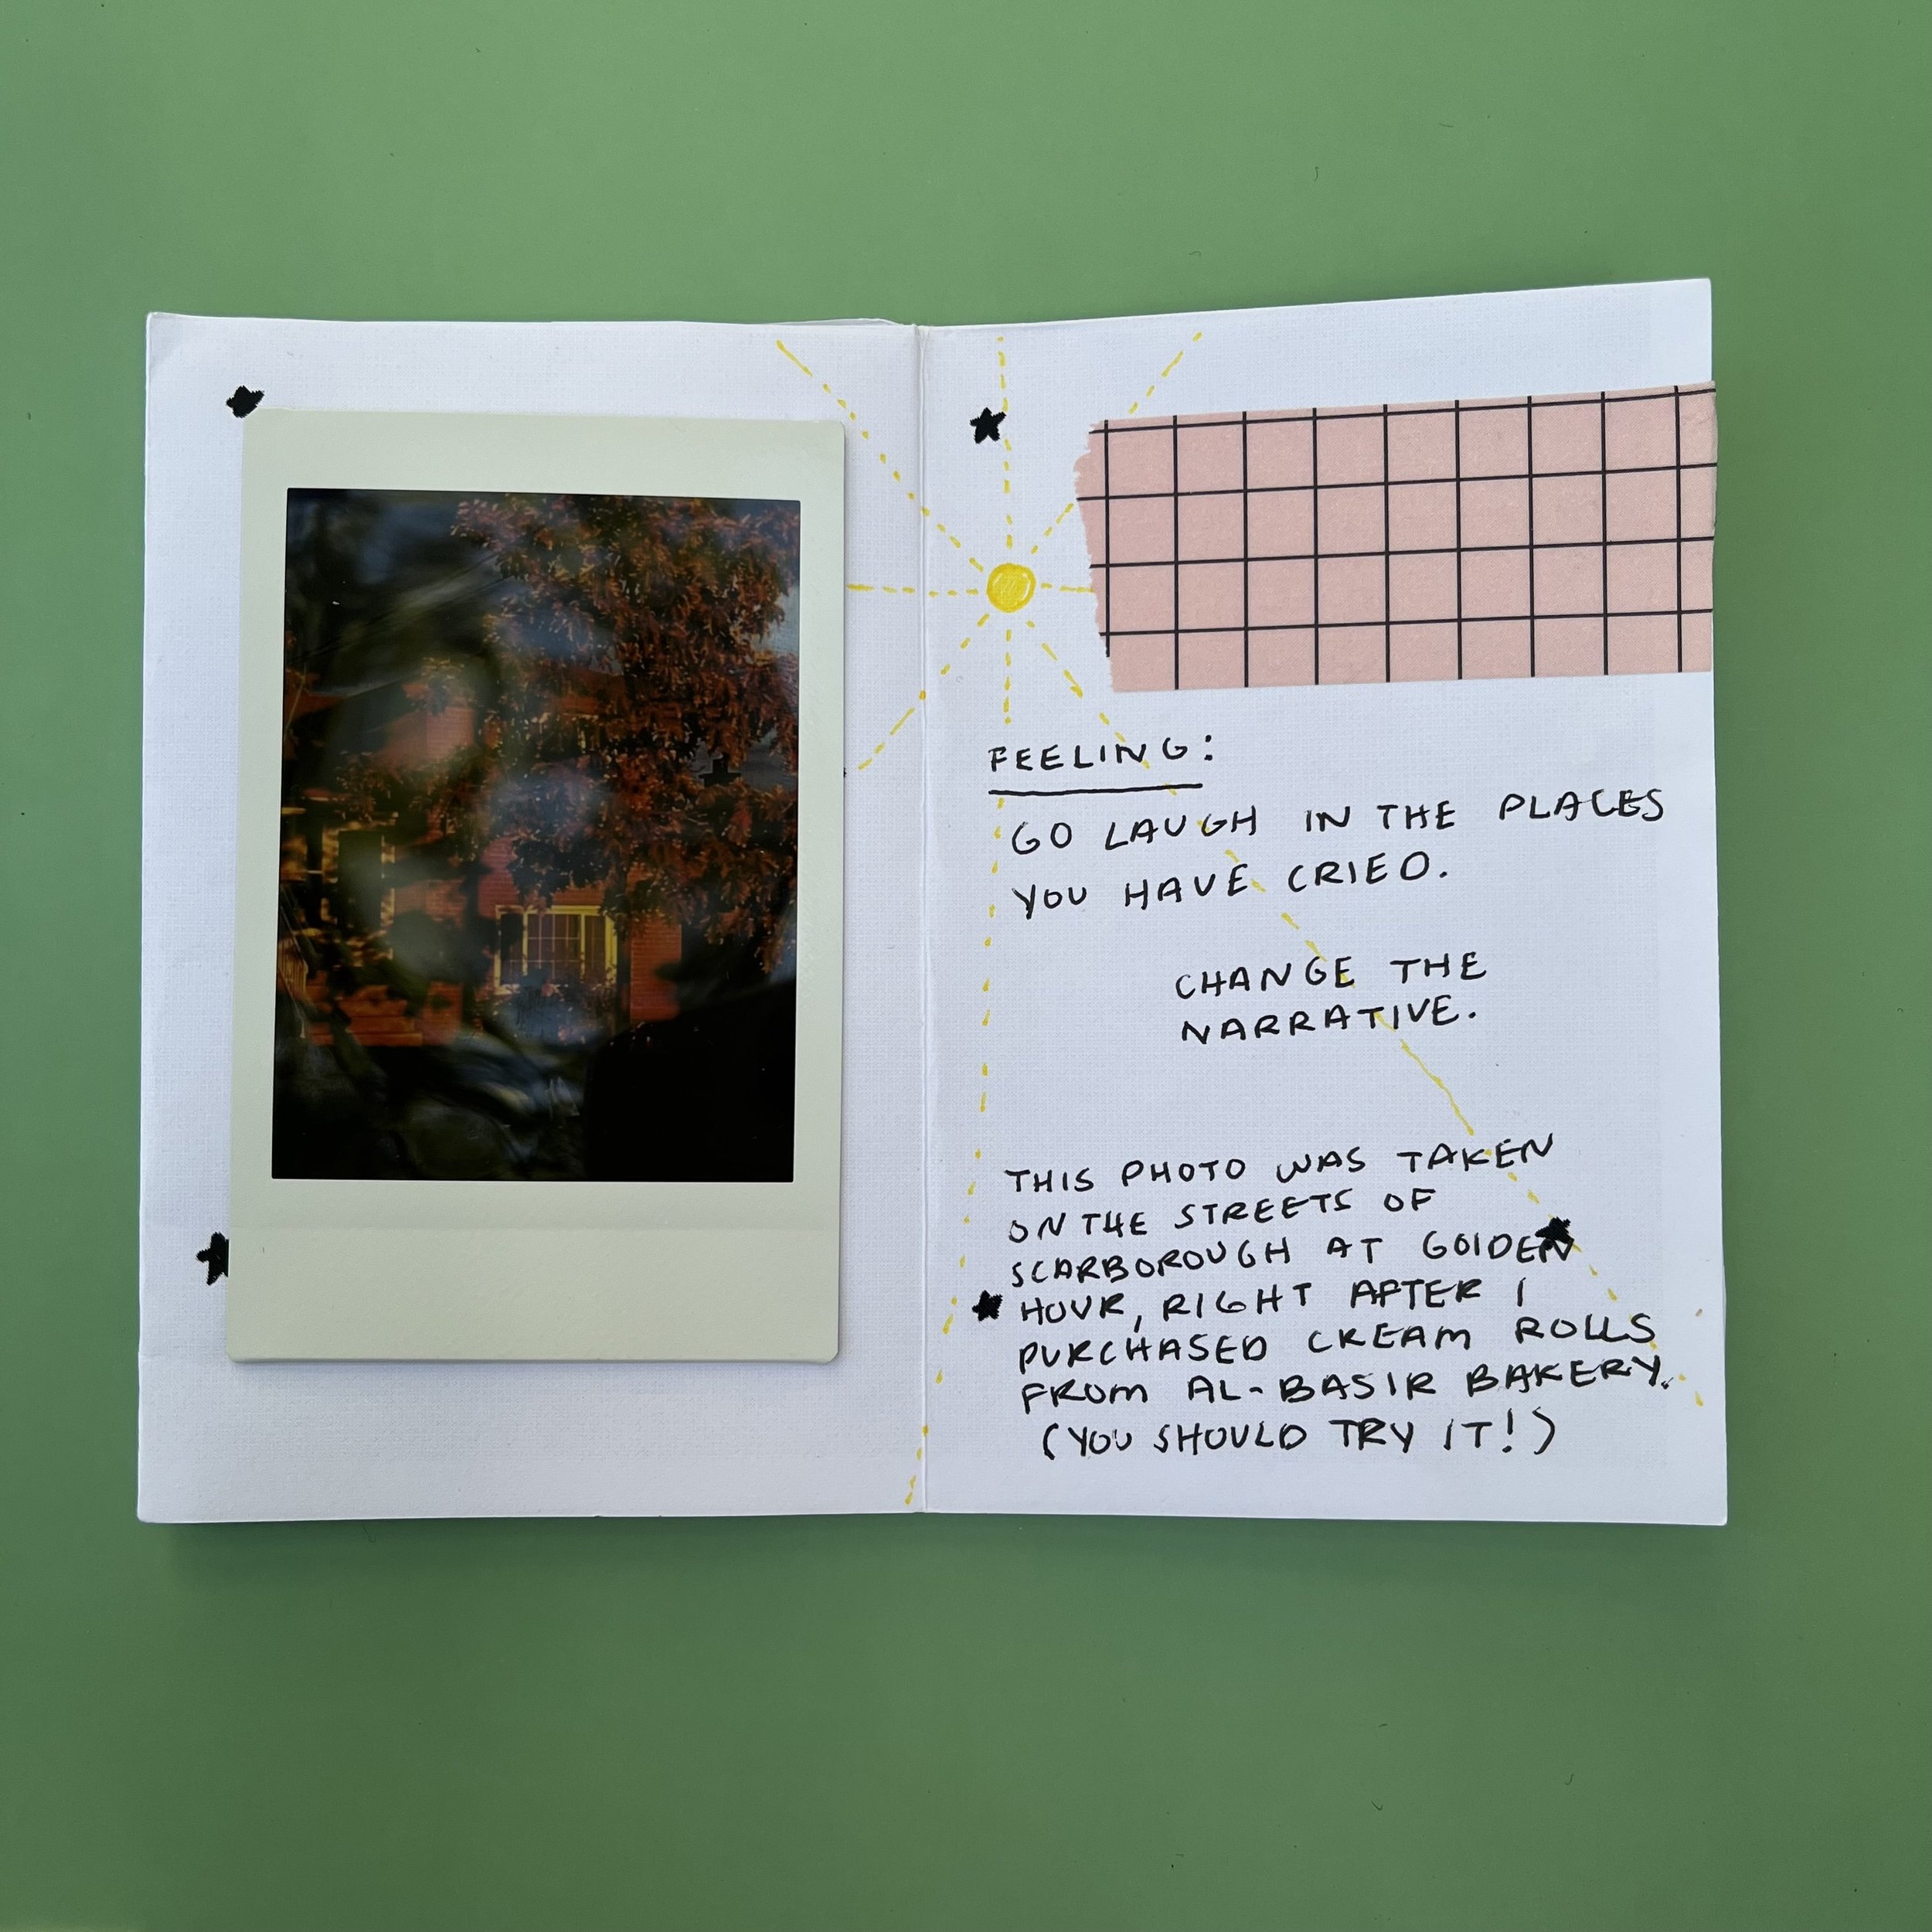 FEELING:
GO LAUGH IN THE PLACES
YOU HAVE CRIED.
CHANGE THE
NARRATIVE.
THIS PHOTO WAS TAKEN
ON THE STREETS OF
SCARBOROUGH AT GOLDEN
HOUR, RIGHT AFTER I
PURCHASED CREAM ROLLS
FROM AL-BASIR BAKERY.
(YOU SHOULD TRY IT!)